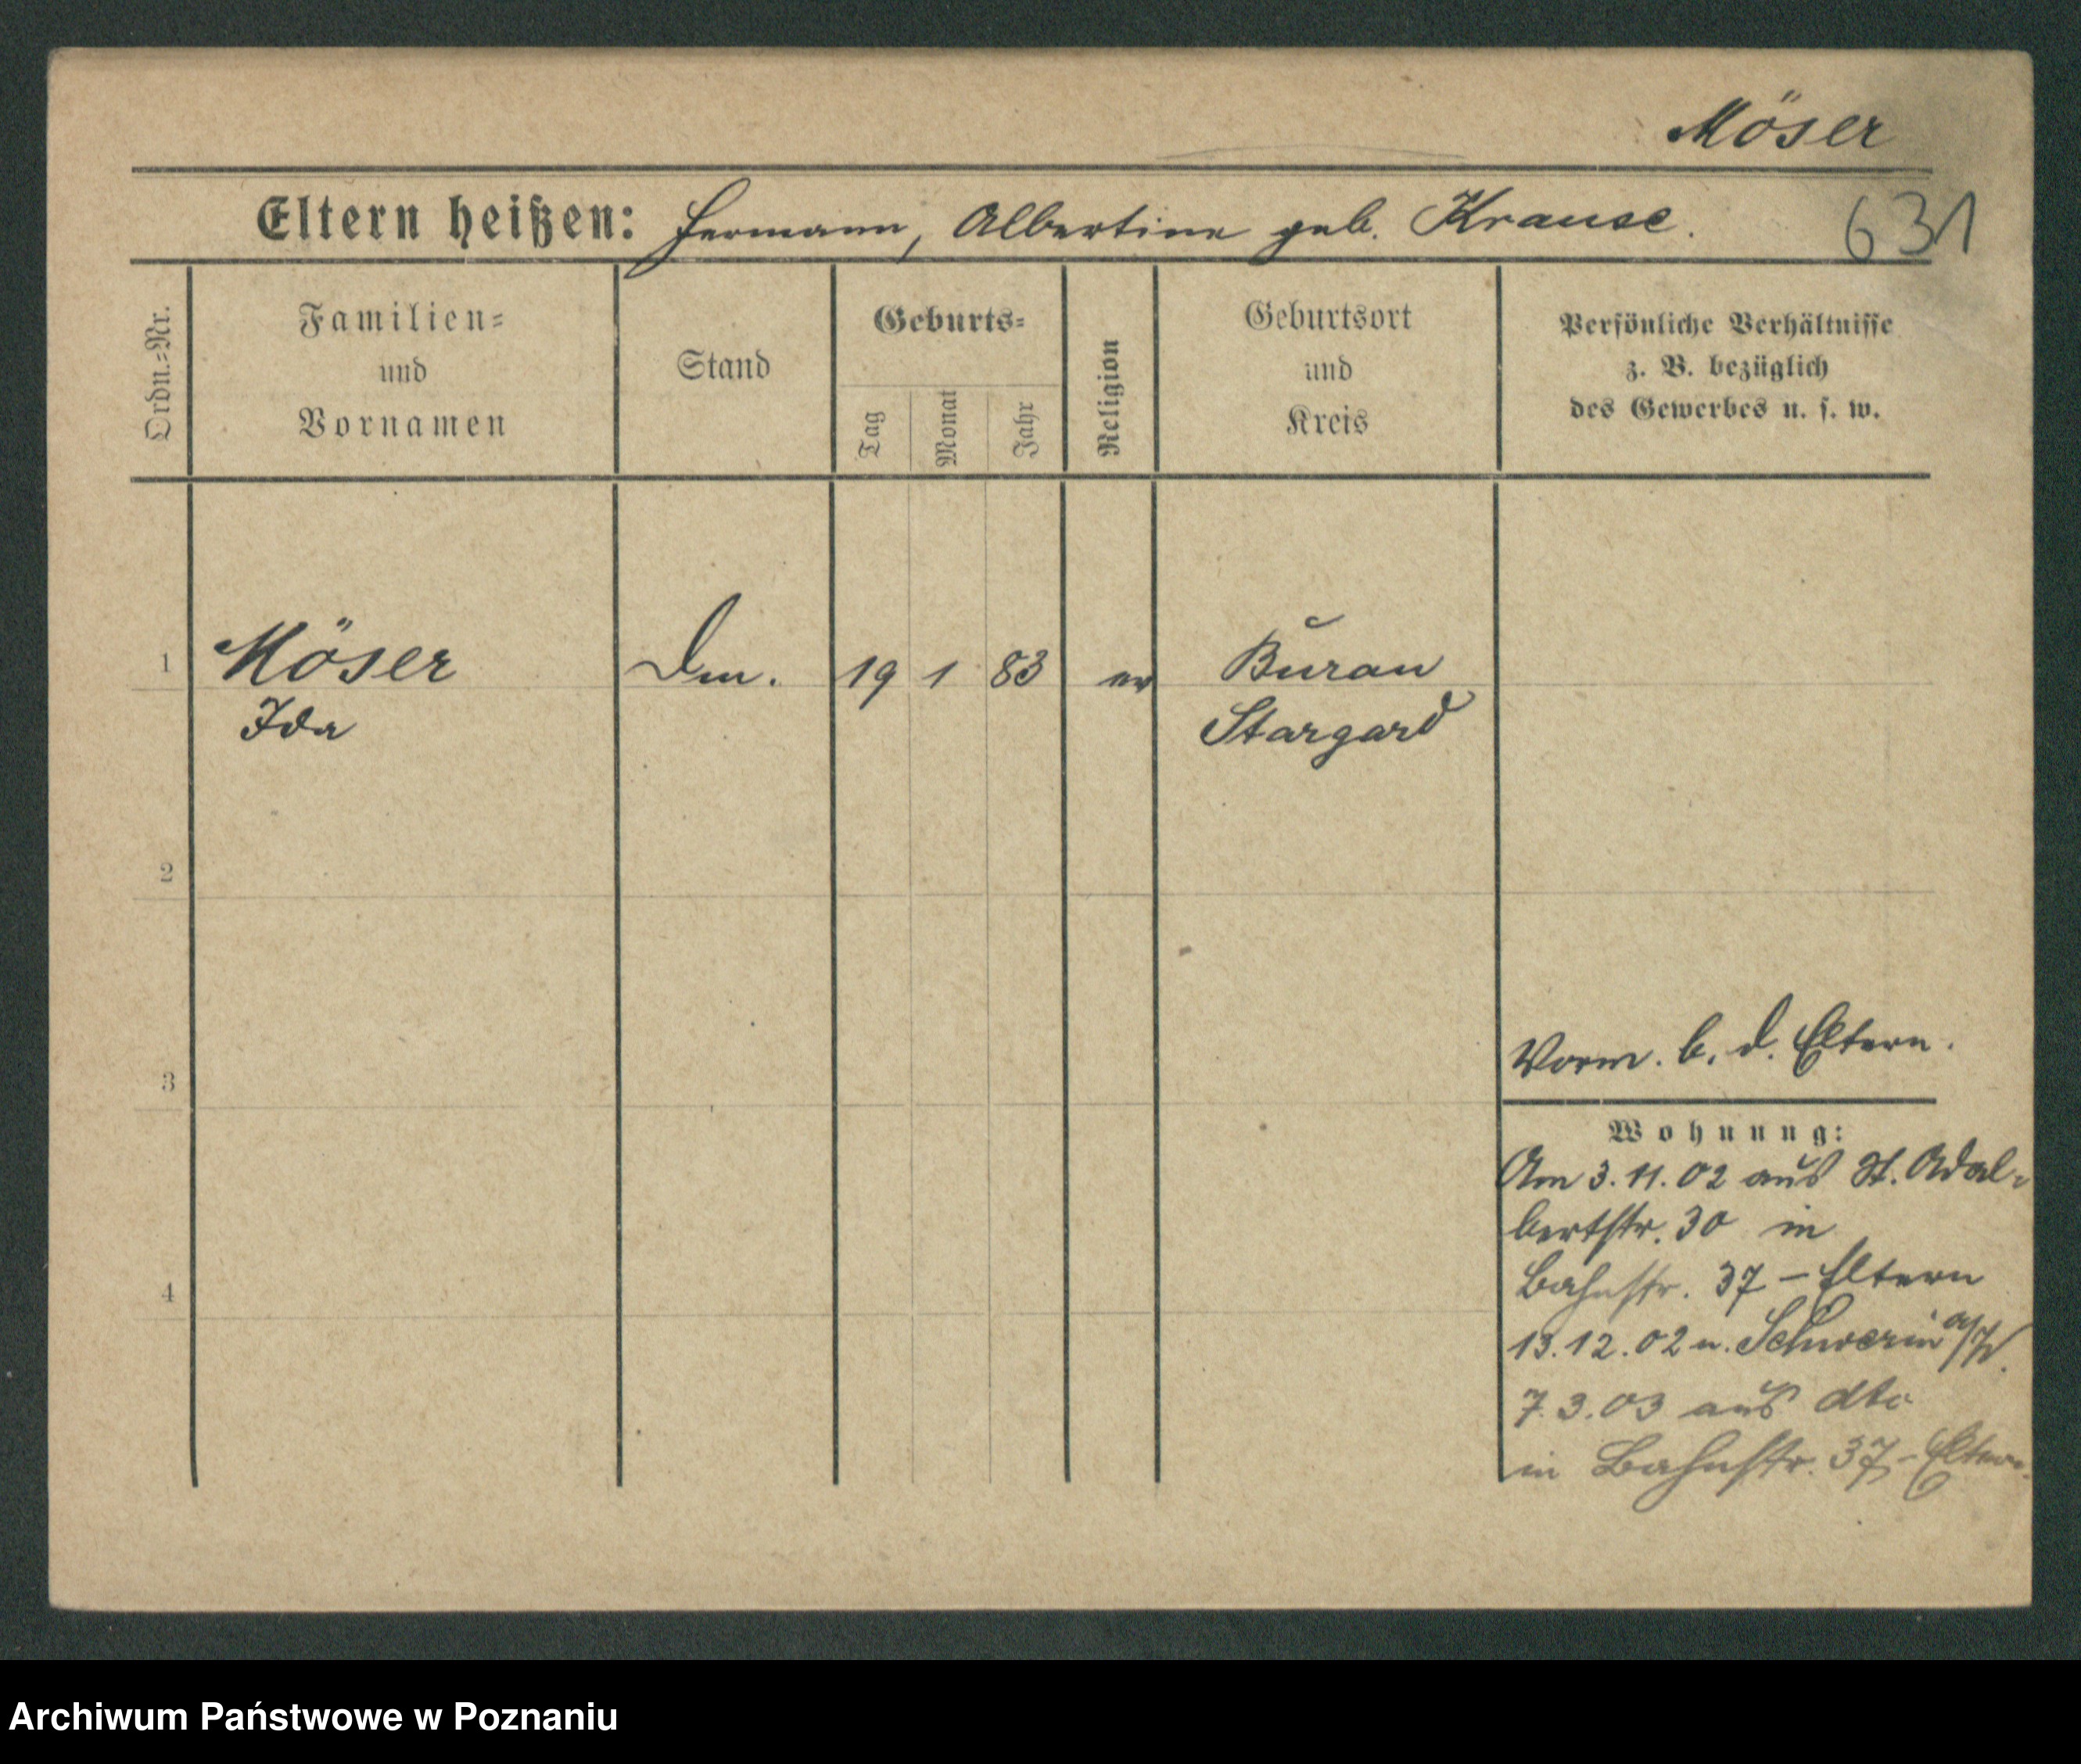 Möser
Eltern heißen: Hermann, Albertine geb. Krause.
631
Ordn.=Nr.
Familien=
und
Vornamen
Stand
Geburts=
Tag
Monat
Jahr
Religion
Geburtsort
und
Kreis
Persönliche Verhältnisse
z. B. bezüglich
des Gewerbes u. s. w.
1 Möser 19 1 83 ev Buran
Ida Stargard
2
3
Vorm. b. d. Eltern.
Wohnung:
Am 3. 11. 02 aus St. Adal-
bertstr. 30 in
4
Bahnstr. 37 – Eltern
13. 12. 02 n. Schwerin a/W.
7. 3. 03 aus dto
in Bahnstr. 37 – Eltern.
Archiwum Państwowe w Poznaniu